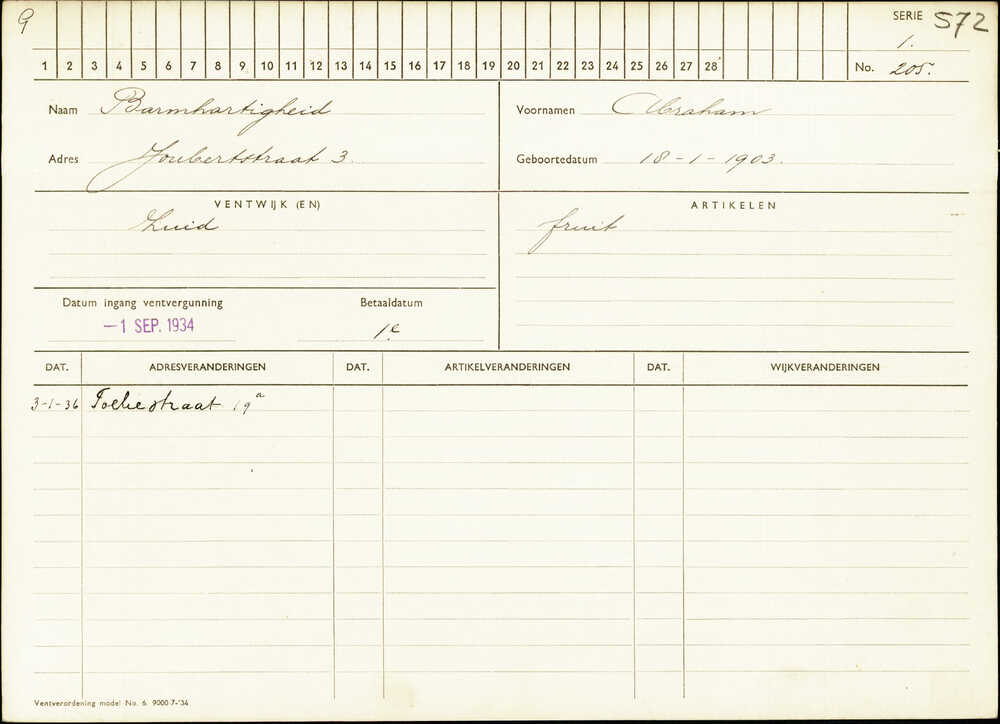 9
SERIE S72
1.
1 2 3 4 5 6 7 8 9 10 11 12 13 14 15 16 17 18 19 20 21 22 23 24 25 26 27 28 No. 205.
Naam Barmhartigheid Voornamen Abraham
Adres Joubertstraat 3. Geboortedatum 18-1-1903.
VENTWIJK (EN) ARTIKELEN
Zuid fruit
Datum ingang ventvergunning Betaaldatum
-1 SEP. 1934 1e
DAT. ADRESVERANDERINGEN DAT. ARTIKELVERANDERINGEN DAT. WIJKVERANDERINGEN
3-1-36 straat 19a
Ventverordening model No. 6. 9000-7-'34